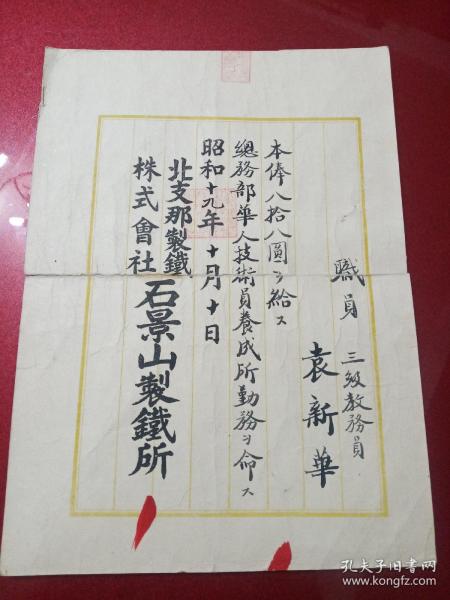 職員　三級教務員
袁新華
本俸八拾八圓ヲ給ス
總務部華人技術員養成所勤務ヲ命ス
昭和十九年十月十日
北支那製鐵
株式會社
石景山製鐵所
孔夫子旧书网
www.kongfz.com